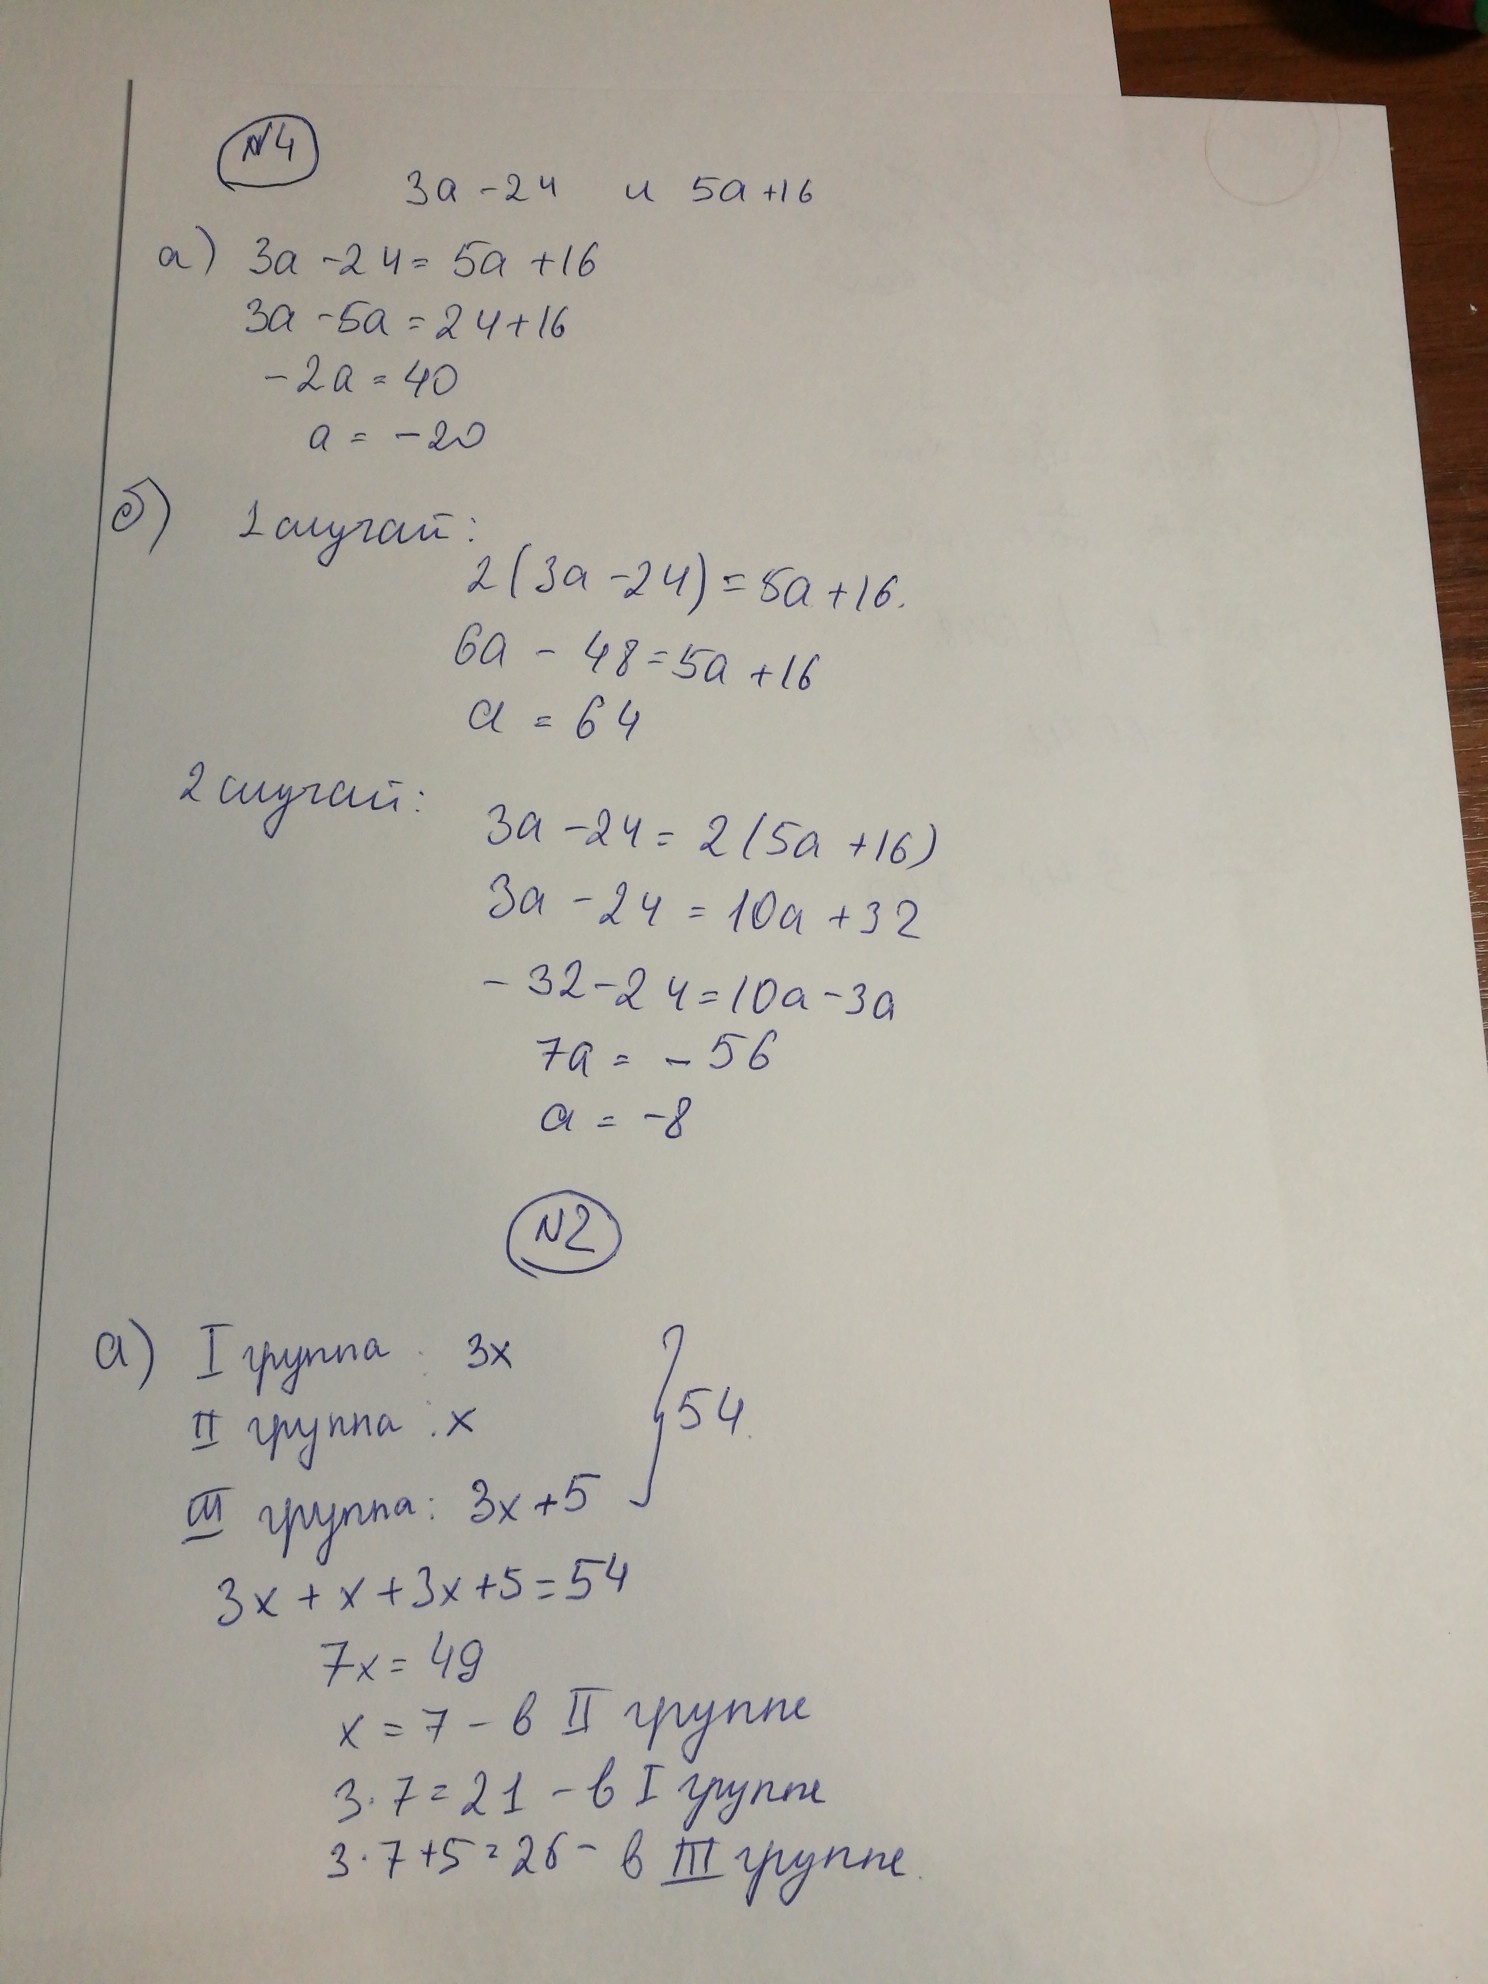 №4
3a - 24 и 5a + 16
а) 3a - 24 = 5a + 16
3a - 5a = 24 + 16
- 2a = 40
a = - 20
б) 1 случай:
2(3a - 24) = 5a + 16.
6a - 48 = 5a + 16
a = 64
2 случай:
3a - 24 = 2(5a + 16)
3a - 24 = 10a + 32
- 32 - 24 = 10a - 3a
7a = - 56
a = - 8
№2
а) I группа : 3x
II группа : x
III группа : 3x + 5
} 54
3x + x + 3x + 5 = 54
7x = 49
x = 7 - в II группе
3 · 7 = 21 - в I группе
3 · 7 + 5 = 26 - в III группе.